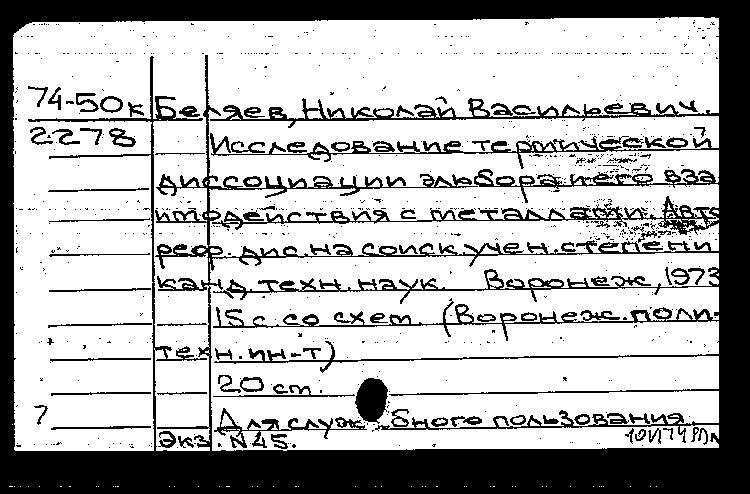 74-50к Беляев, Николай Васильевич.
2278 Исследование термической
диссоциации эльбора и его вза
имодействия с металлами. Авто
реф. дис. на соиск. учен. степени
канд. техн. наук. Воронеж, 1973
15 с. со схем. (Воронеж. поли-
техн. ин-т)
20 см.
7 Для служ бного пользования.
Экз. N 45.